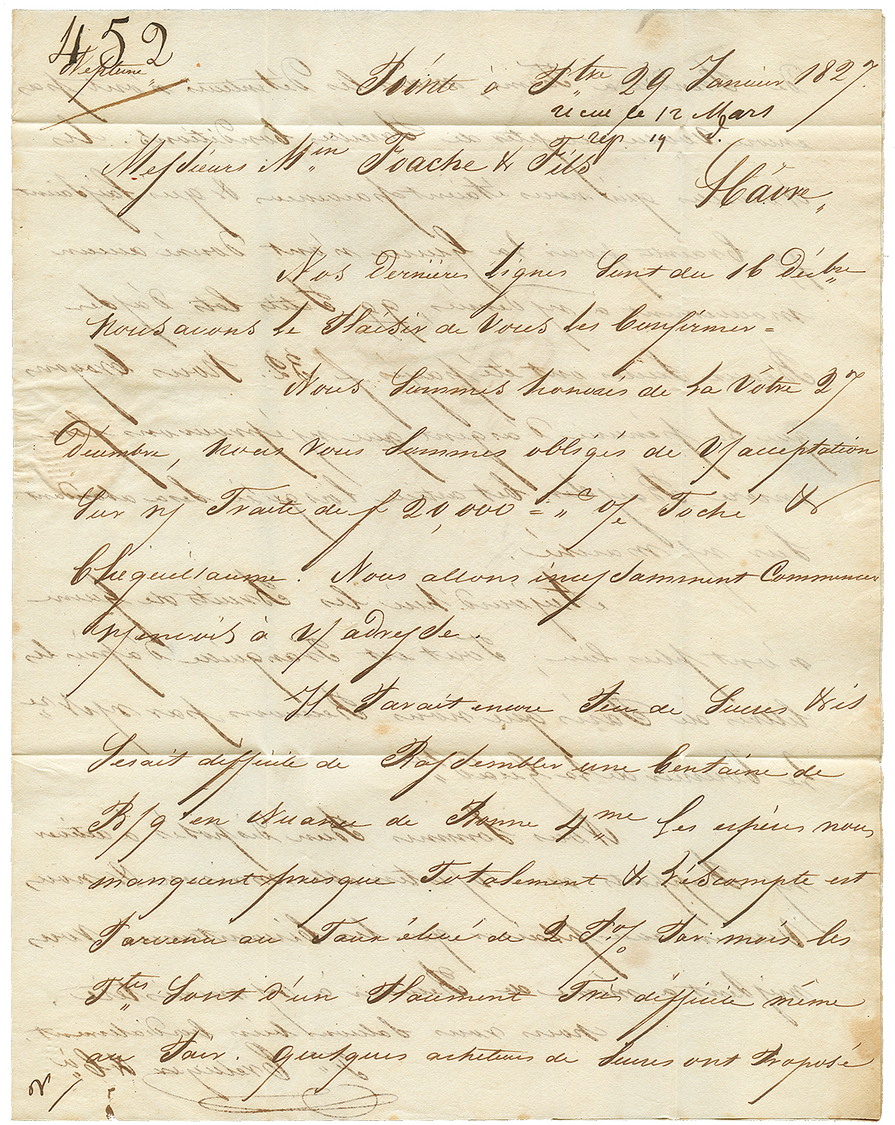 452
Neptune
Pointe à Ptre 29 Janvier 1827.
recue le 12 Mars
rep 19 d.
Messieurs Min Foache & Fils
Hâvre
Nos dernières lignes sont du 16 décbre
nous avons le Plaisir de vous les Confirmer =
Nous Sommes honorés de la Vôtre 27
Décembre, nous vous Sommes obligés de V/acceptation
Sur n/ Traite de f 20,000 = o/ Toché &
Nous allons incessamment Commencer
n/ envois à V/ adresse.
Il Parait encore Peu de Sucres & il
Serait difficile de Rassembler une Centaine de
B/q en Nuance de Bonne 4me Les espèces nous
manquent presque Totalement & l'éscompte est
Parvenu au Taux élevé de 2 P% Par mois les
Ttes Sont d'un Placement Très difficile même
au Pair. Quelques acheteurs de Sucres ont Proposé